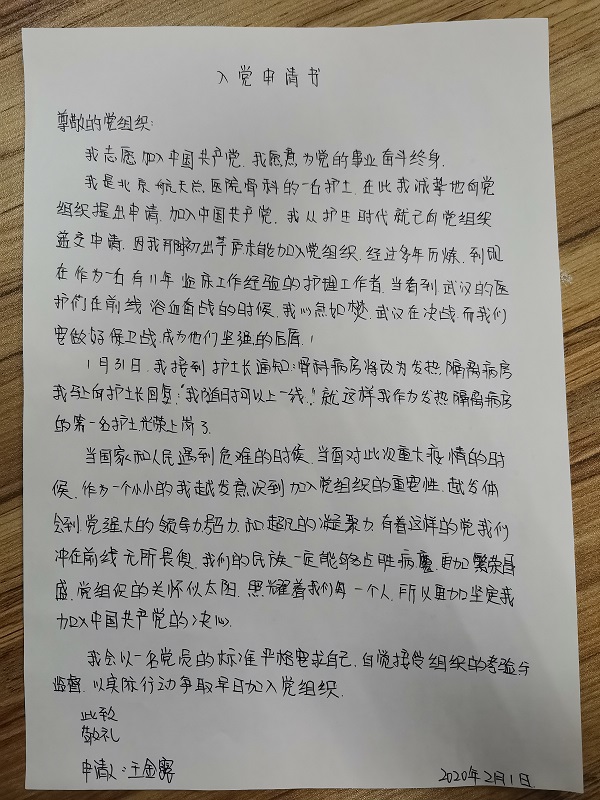 入党申请书
尊敬的党组织:
我志愿加入中国共产党.我愿意为党的事业奋斗终身.
我是北京航天总医院骨科的一名护士.在此我诚挚地向党
组织提出申请.加入中国共产党.我从护生时代就已向党组织
递交申请.因我刚初出茅庐未能加入党组织.经过多年历炼.到现
在作为一名有11年临床工作经验的护理工作者.当看到武汉的医
护们在前线浴血奋战的时候.我心急如樊.武汉在决战.而我们
要做好保卫战.成为他们坚强的后盾!
1月31日.我接到护士长通知:骨科病房将改为发热隔离病房
我马上向护士长回复:"我随时可以上一线."就这样我作为发热隔离病房
的第一名护士光荣上岗了.
当国家和人民遇到危难的时候.当面对此次重大疫情的时
候.作为一个小小的我越发意识到加入党组织的重要性.越发体
会到党强大的领导力号召力.和超凡的凝聚力.有着这样的党我们
冲在前线无所畏惧.我们的民族一定能够占胜病魔.更加繁荣昌
盛.党组织的关怀似太阳.照耀着我们每一个人.所以更加坚定我
加入中国共产党的决心.
我会以一名党员的标准严格要求自己.自觉接受组织的考验与
监督.以实际行动争取早日加入党组织.
此致
敬礼
申请人:王金露
2020年2月1日.